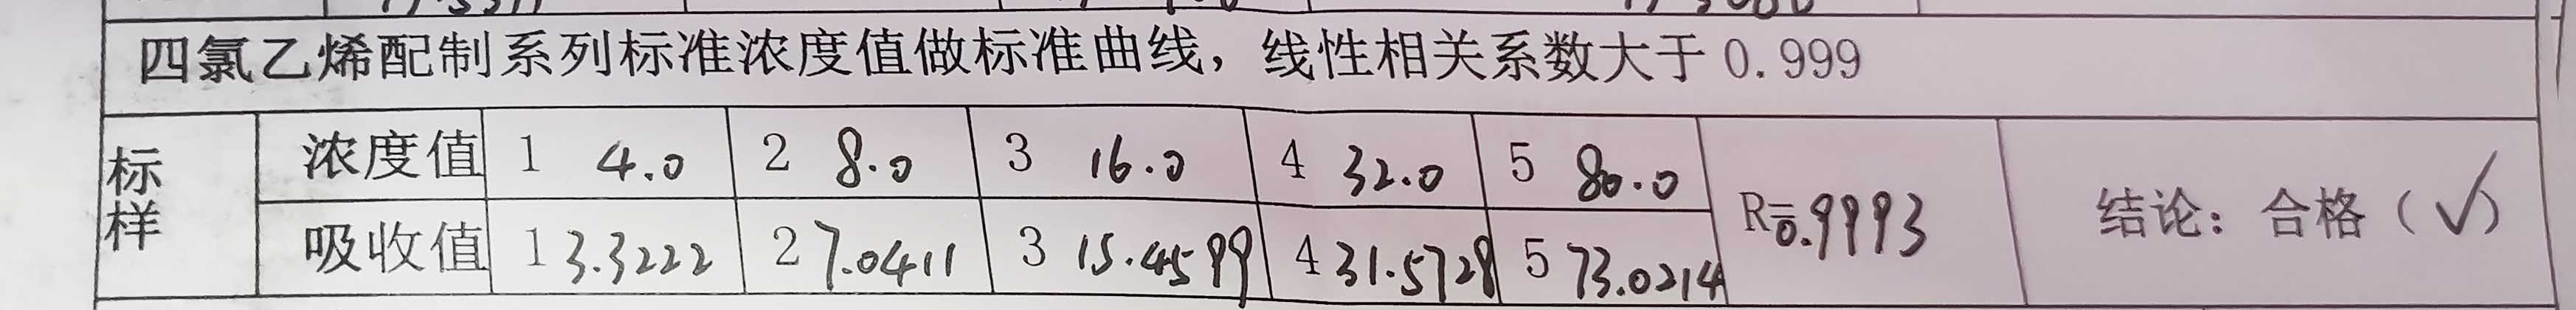 四氯乙烯配制系列标准浓度值做标准曲线，线性相关系数大于 0.999
标样 浓度值 1 4.0 2 8.0 3 16.0 4 32.0 5 80.0
吸收值 1 3.3222 2 7.0411 3 15.4599 4 31.5728 5 73.0214
R=0.9993 结论：合格（√）